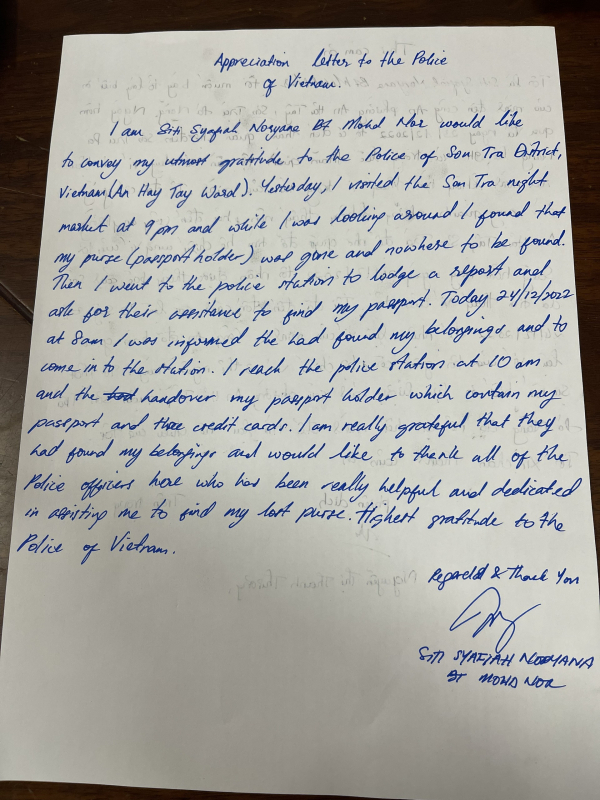 Appreciation letter to the Police
of Vietnam.
I am Siti Syafiah Noryana Bt Mohd Nor would like
to convey my utmost gratitude to the Police of Son Tra District,
Vietnam (An Hay Tay Ward). Yesterday, I visited the Son Tra night
market at 9pm and while I was looking around I found that
my purse (passport holder) was gone and nowhere to be found.
Then I went to the police station to lodge a report and
ask for their assistance to find my passport. Today 24/12/2022
at 8am I was informed the had found my belongings and to
come in to the station. I reach the police station at 10 am
and the handover my passport holder which contain my
passport and three credit cards. I am really grateful that they
had found my belongings and would like to thank all of the
Police officers here who has been really helpful and dedicated
in assisting me to find my lost purse. Highest gratitude to the
Police of Vietnam.
Regards & Thank You
SITI SYAFIAH NORYANA
BT MOHD NOR